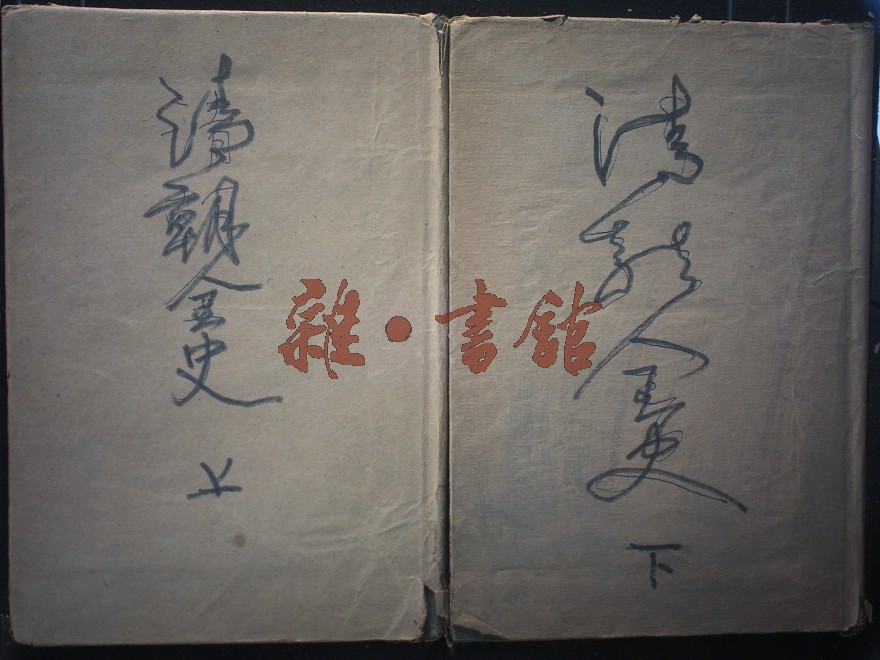 清朝全史
上
清朝全史
下
雜·書館